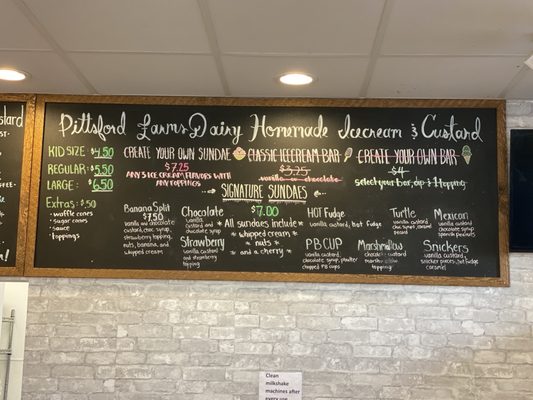 Pittsford Farms Dairy Homemade Icecream & Custard
KID SIZE: $4.50
REGULAR: $5.50
LARGE: $6.50
Extras: $.50
- waffle cones
- sugar cones
- sauce
- toppings
CREATE YOUR OWN SUNDAE
$7.75
ANY SIZE CREAM FLAVORS WITH
ANY TOPPINGS
CLASSIC ICECREAM BAR
$3.25
vanilla or chocolate
CREATE YOUR OWN BAR
$4
select your bar, dip & 1 topping
SIGNATURE SUNDAES
$7.00
* All sundaes include *
* whipped cream *
* nuts *
* and a cherry *
Banana Split
$7.50
vanilla and chocolate
custard, choc. syrup,
strawberry topping,
nuts, banana, and
whipped cream
Chocolate
vanilla custard
and chocolate
syrup
Strawberry
vanilla custard
and strawberry
topping
HOT Fudge
vanilla custard, hot fudge
PB CUP
vanilla custard,
chocolate syrup,
chopped PB cups
Marshmallow
chocolate custard
topping
Turtle
vanilla custard
Mexican
vanilla custard
chocolate syrup
spanish peanuts
Snickers
vanilla custard,
snicker pieces, hot fudge
caramel
Clean
milkshake
machines after
every use